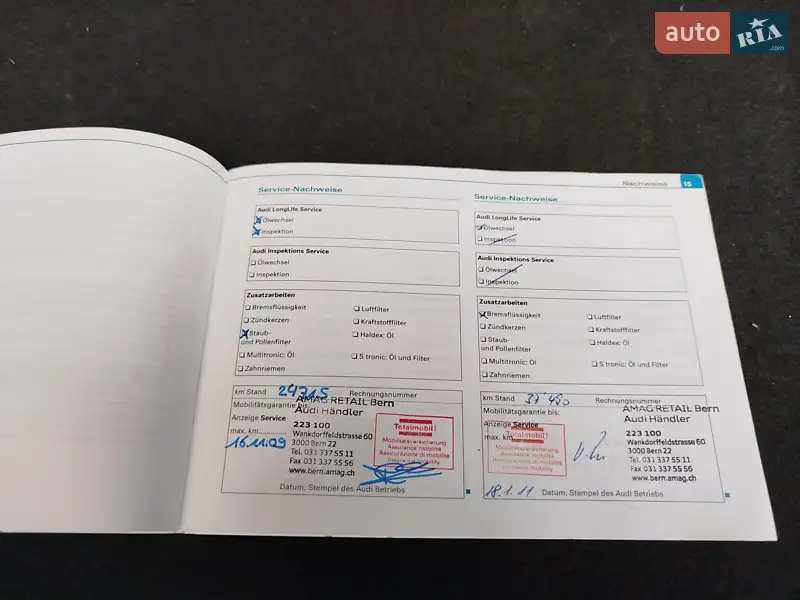 auto RIA .com
Nachweise 15
Service-Nachweise
Audi LongLife Service
Ölwechsel
Inspektion
Audi Inspektions Service
Ölwechsel
Inspektion
Zusatzarbeiten
Bremsflüssigkeit
Luftfilter
Zündkerzen
Kraftstofffilter
Staub-
und Pollenfilter
Haldex: Öl
Multitronic: Öl
S tronic: Öl und Filter
Zahnriemen
km Stand 24715 Rechnungsnummer
Mobilitätsgarantie bis:
AMAG RETAIL Bern
Audi Händler
Anzeige Service
223 100
max. km
Wankdorffeldstrasse 60
16.11.09
3000 Bern 22
Tel. 031 337 55 11
Fax 031 337 55 56
www.bern.amag.ch
Totalmobil!
Mobilitätsversicherung
Assurance mobilité
Assicurazione di mobilità
Insurance mobility
Datum, Stempel des Audi Betriebs
Service-Nachweise
Audi LongLife Service
Ölwechsel
Inspektion
Audi Inspektions Service
Ölwechsel
Inspektion
Zusatzarbeiten
Bremsflüssigkeit
Luftfilter
Zündkerzen
Kraftstofffilter
Staub-
und Pollenfilter
Haldex: Öl
Multitronic: Öl
S tronic: Öl und Filter
Zahnriemen
km Stand Rechnungsnummer
Mobilitätsgarantie bis:
AMAG RETAIL Bern
Audi Händler
Anzeige Service
223 100
max. km
Wankdorffeldstrasse 60
3000 Bern 22
Tel. 031 337 55 11
Fax 031 337 55 56
www.bern.amag.ch
Totalmobil!
Mobilitätsversicherung
Assurance mobilité
Assicurazione di mobilità
Insurance mobility
18.1.11 Datum, Stempel des Audi Betriebs